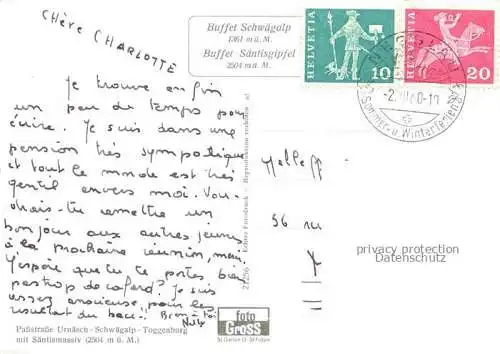 CHÈRE CHARLOTTE
Buffet Schwägalp
1361 m ü. M.
Buffet Säntisgipfel
2504 m ü. M.
HELVETIA
10
HELVETIA
20
Sommer- u. Winterferien
Je trouve enfin
un peu de temps pour
écrire. Je suis dans une
pension très sympatique
et tout le monde est très
gentil envers moi. Vou-
drais-tu remettre un
bonjour aux autres jeunes
à la prochaine réunion, merci.
J'espère que tu te portes bien
pas trop de cafard? Je suis
assez anxieuse pour les
résultat du bac!! Bien à toi
Melle
56 rue
21256
Echte Fotodruck - Reproduktion verboten
privacy protection
Datenschutz
foto
GROSS
St. Gallen
Paßstraße Urnäsch - Schwägalp - Toggenburg
mit Säntismassiv (2504 m ü. M.)